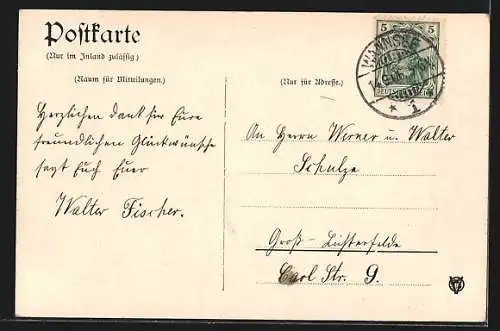 Postkarte
(Nur im Inland zulässig)
(Raum für Mitteilungen.)
(Nur für Adresse.)
5 5
WANNSEE
* 1
Herzlichen Dank für Eure
freundlichen Glückwünsche
sagt Euch Euer
Walter Fischer.
An Herrn Werner u. Walter
Schulze
Groß-Lichterfelde
Carl Str. 9